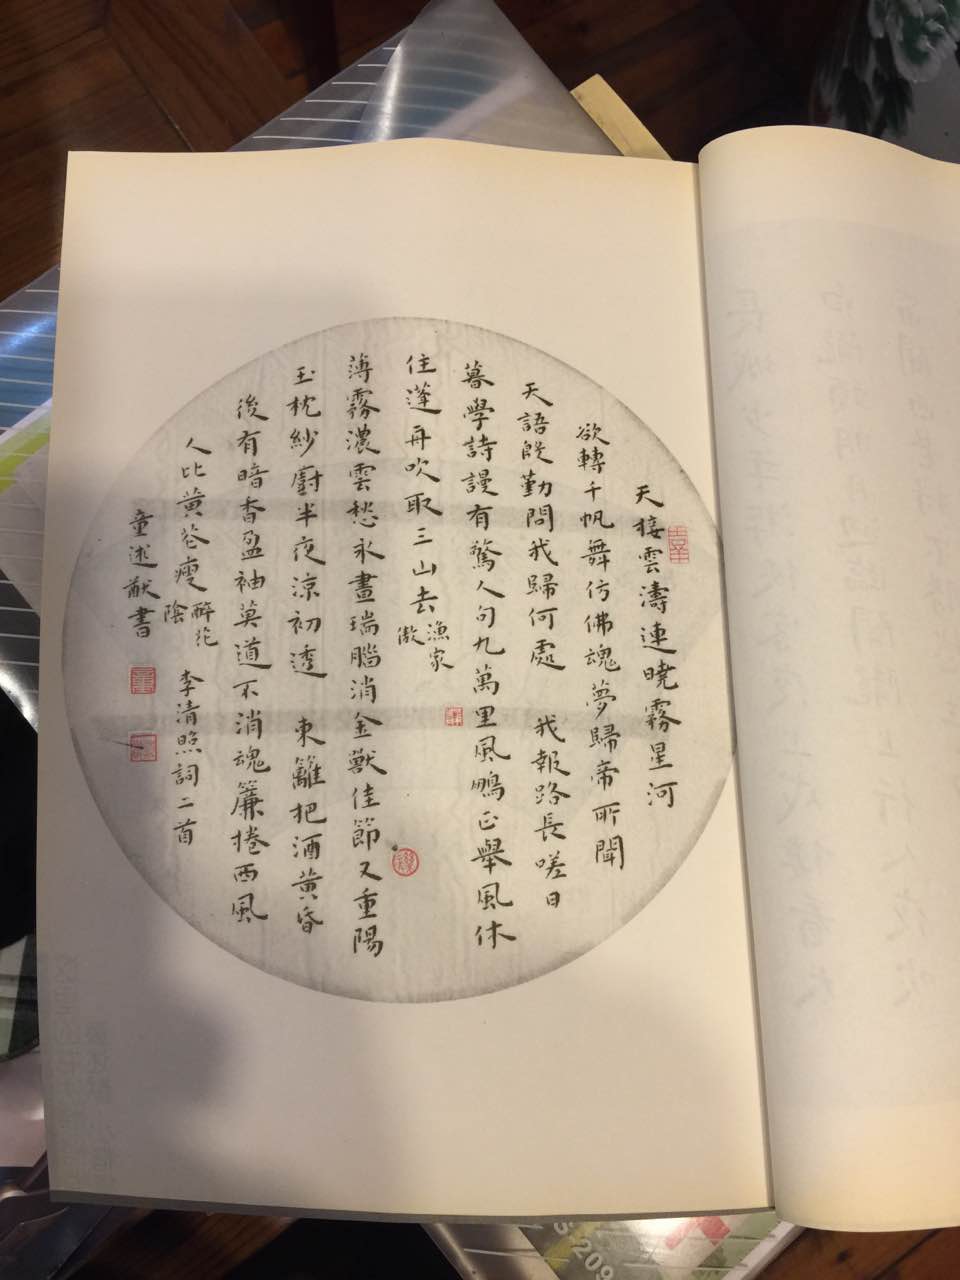 天接雲濤連曉霧星河
欲轉千帆舞仿佛魂夢歸帝所聞
天語殷勤問我歸何處 我報路長嗟日
暮學詩謾有驚人句九萬里風鵬正舉風休
住蓬舟吹取三山去 漁家傲
薄霧濃雲愁永晝瑞腦消金獸佳節又重陽
玉枕紗廚半夜涼初透 東籬把酒黃昏
後有暗香盈袖莫道不消魂簾捲西風
人比黃花瘦 醉花陰 李清照詞二首
童述猷書
209